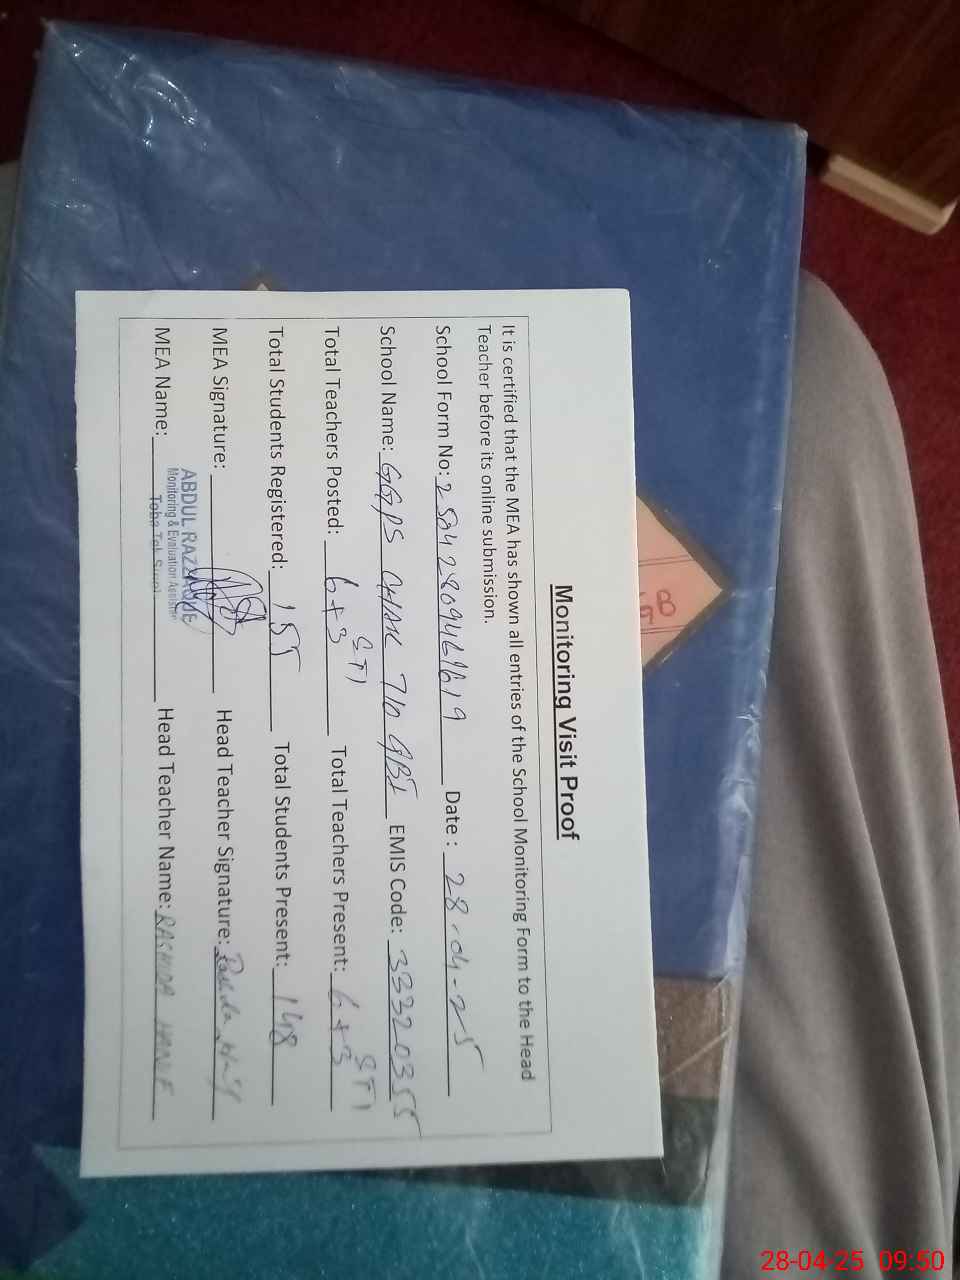 Monitoring Visit Proof
It is certified that the MEA has shown all entries of the School Monitoring Form to the Head
Teacher before its online submission.
School Form No: Date : 28-04-25
School Name: GGPS CHAK 710 GB EMIS Code: 33320355
STI STI
Total Teachers Posted: 6+3 Total Teachers Present: 6+3
Total Students Registered: 155 Total Students Present: 148
MEA Signature: Head Teacher Signature:
ABDUL RAZZAQUE
Monitoring & Evaluation Assistant
Toba Tek Singh
MEA Name: Head Teacher Name: RASHIDA HANIF
8
28-04-25 09:50